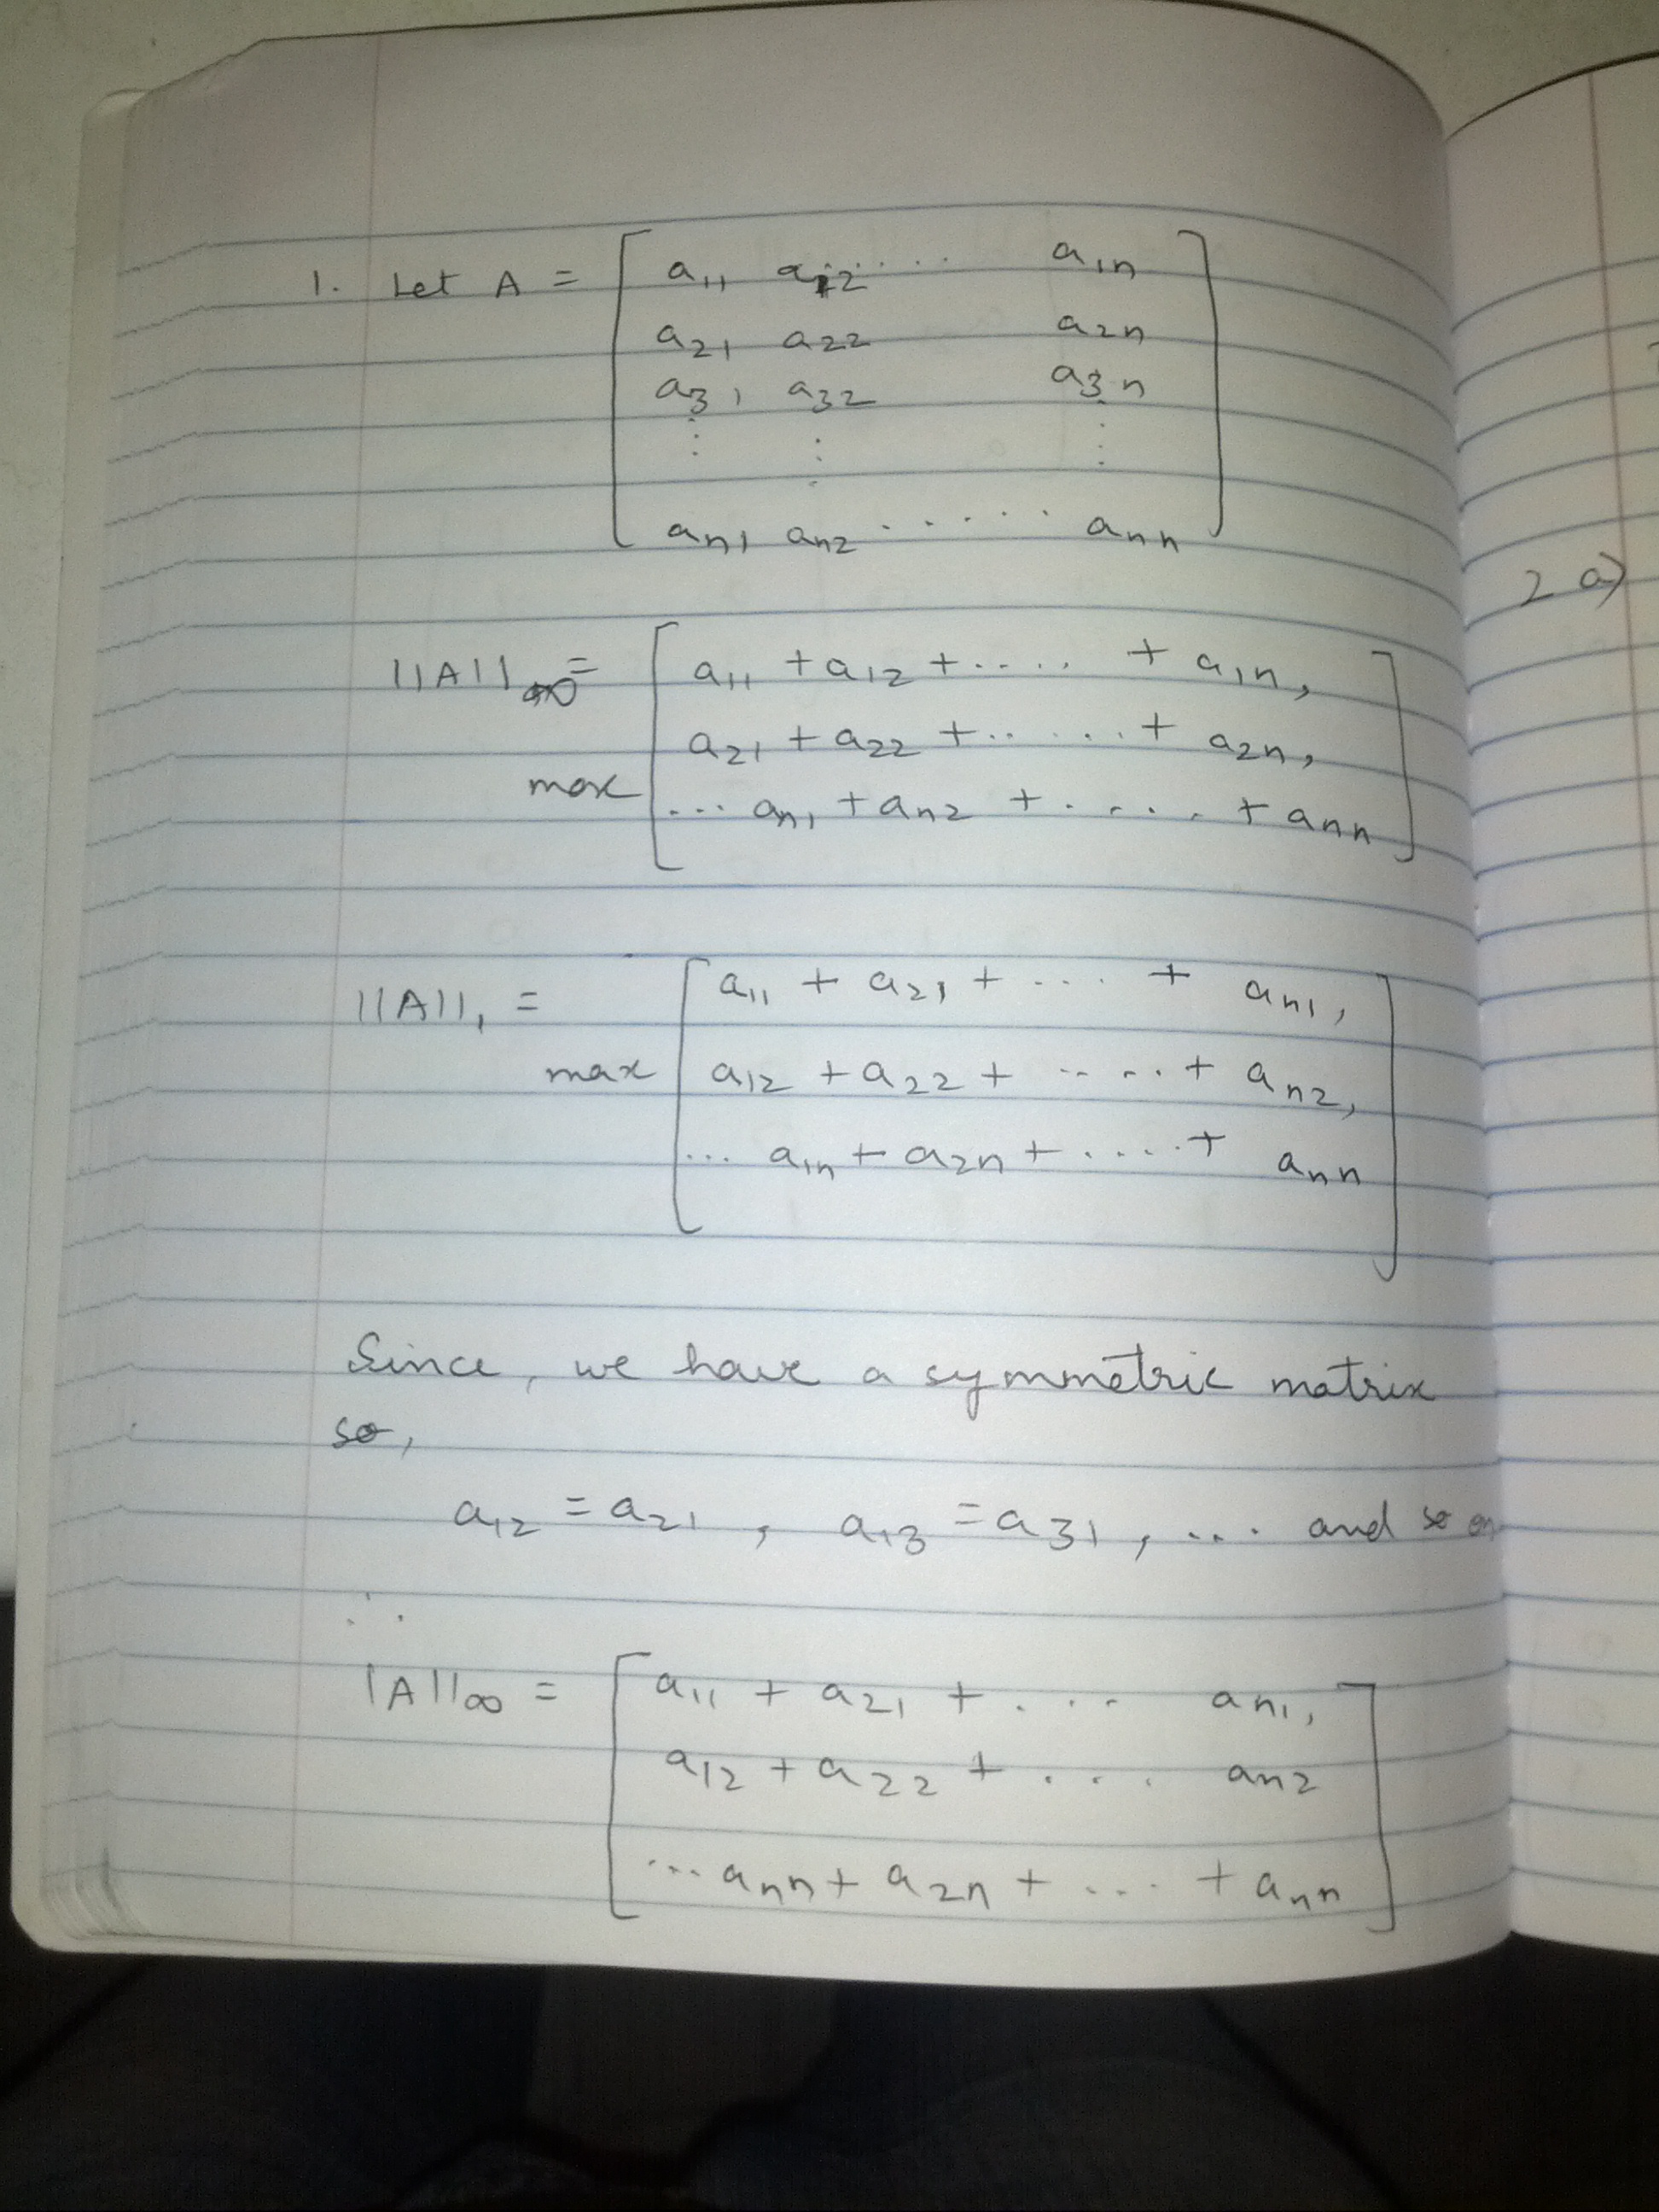 1. Let A = [ a11 a12 .... a1n
a21 a22 a2n
a31 a32 a3n
⋮ ⋮ ⋮
an1 an2 ...... ann ]
||A||∞ = [ a11 + a12 + ..... + a1n,
a21 + a22 + ...... + a2n,
max
... an1 + an2 + ..... + ann ]
2 a)
||A||1 = [ a11 + a21 + .... + an1,
max a12 + a22 + ..... + an2,
... a1n + a2n + ..... + ann ]
Since, we have a symmetric matrix
so,
a12 = a21 , a13 = a31 , ... and so on
∴
|A||∞ = [ a11 + a21 + ... an1,
a12 + a22 + .... an2
... ann + a2n + ... + ann ]